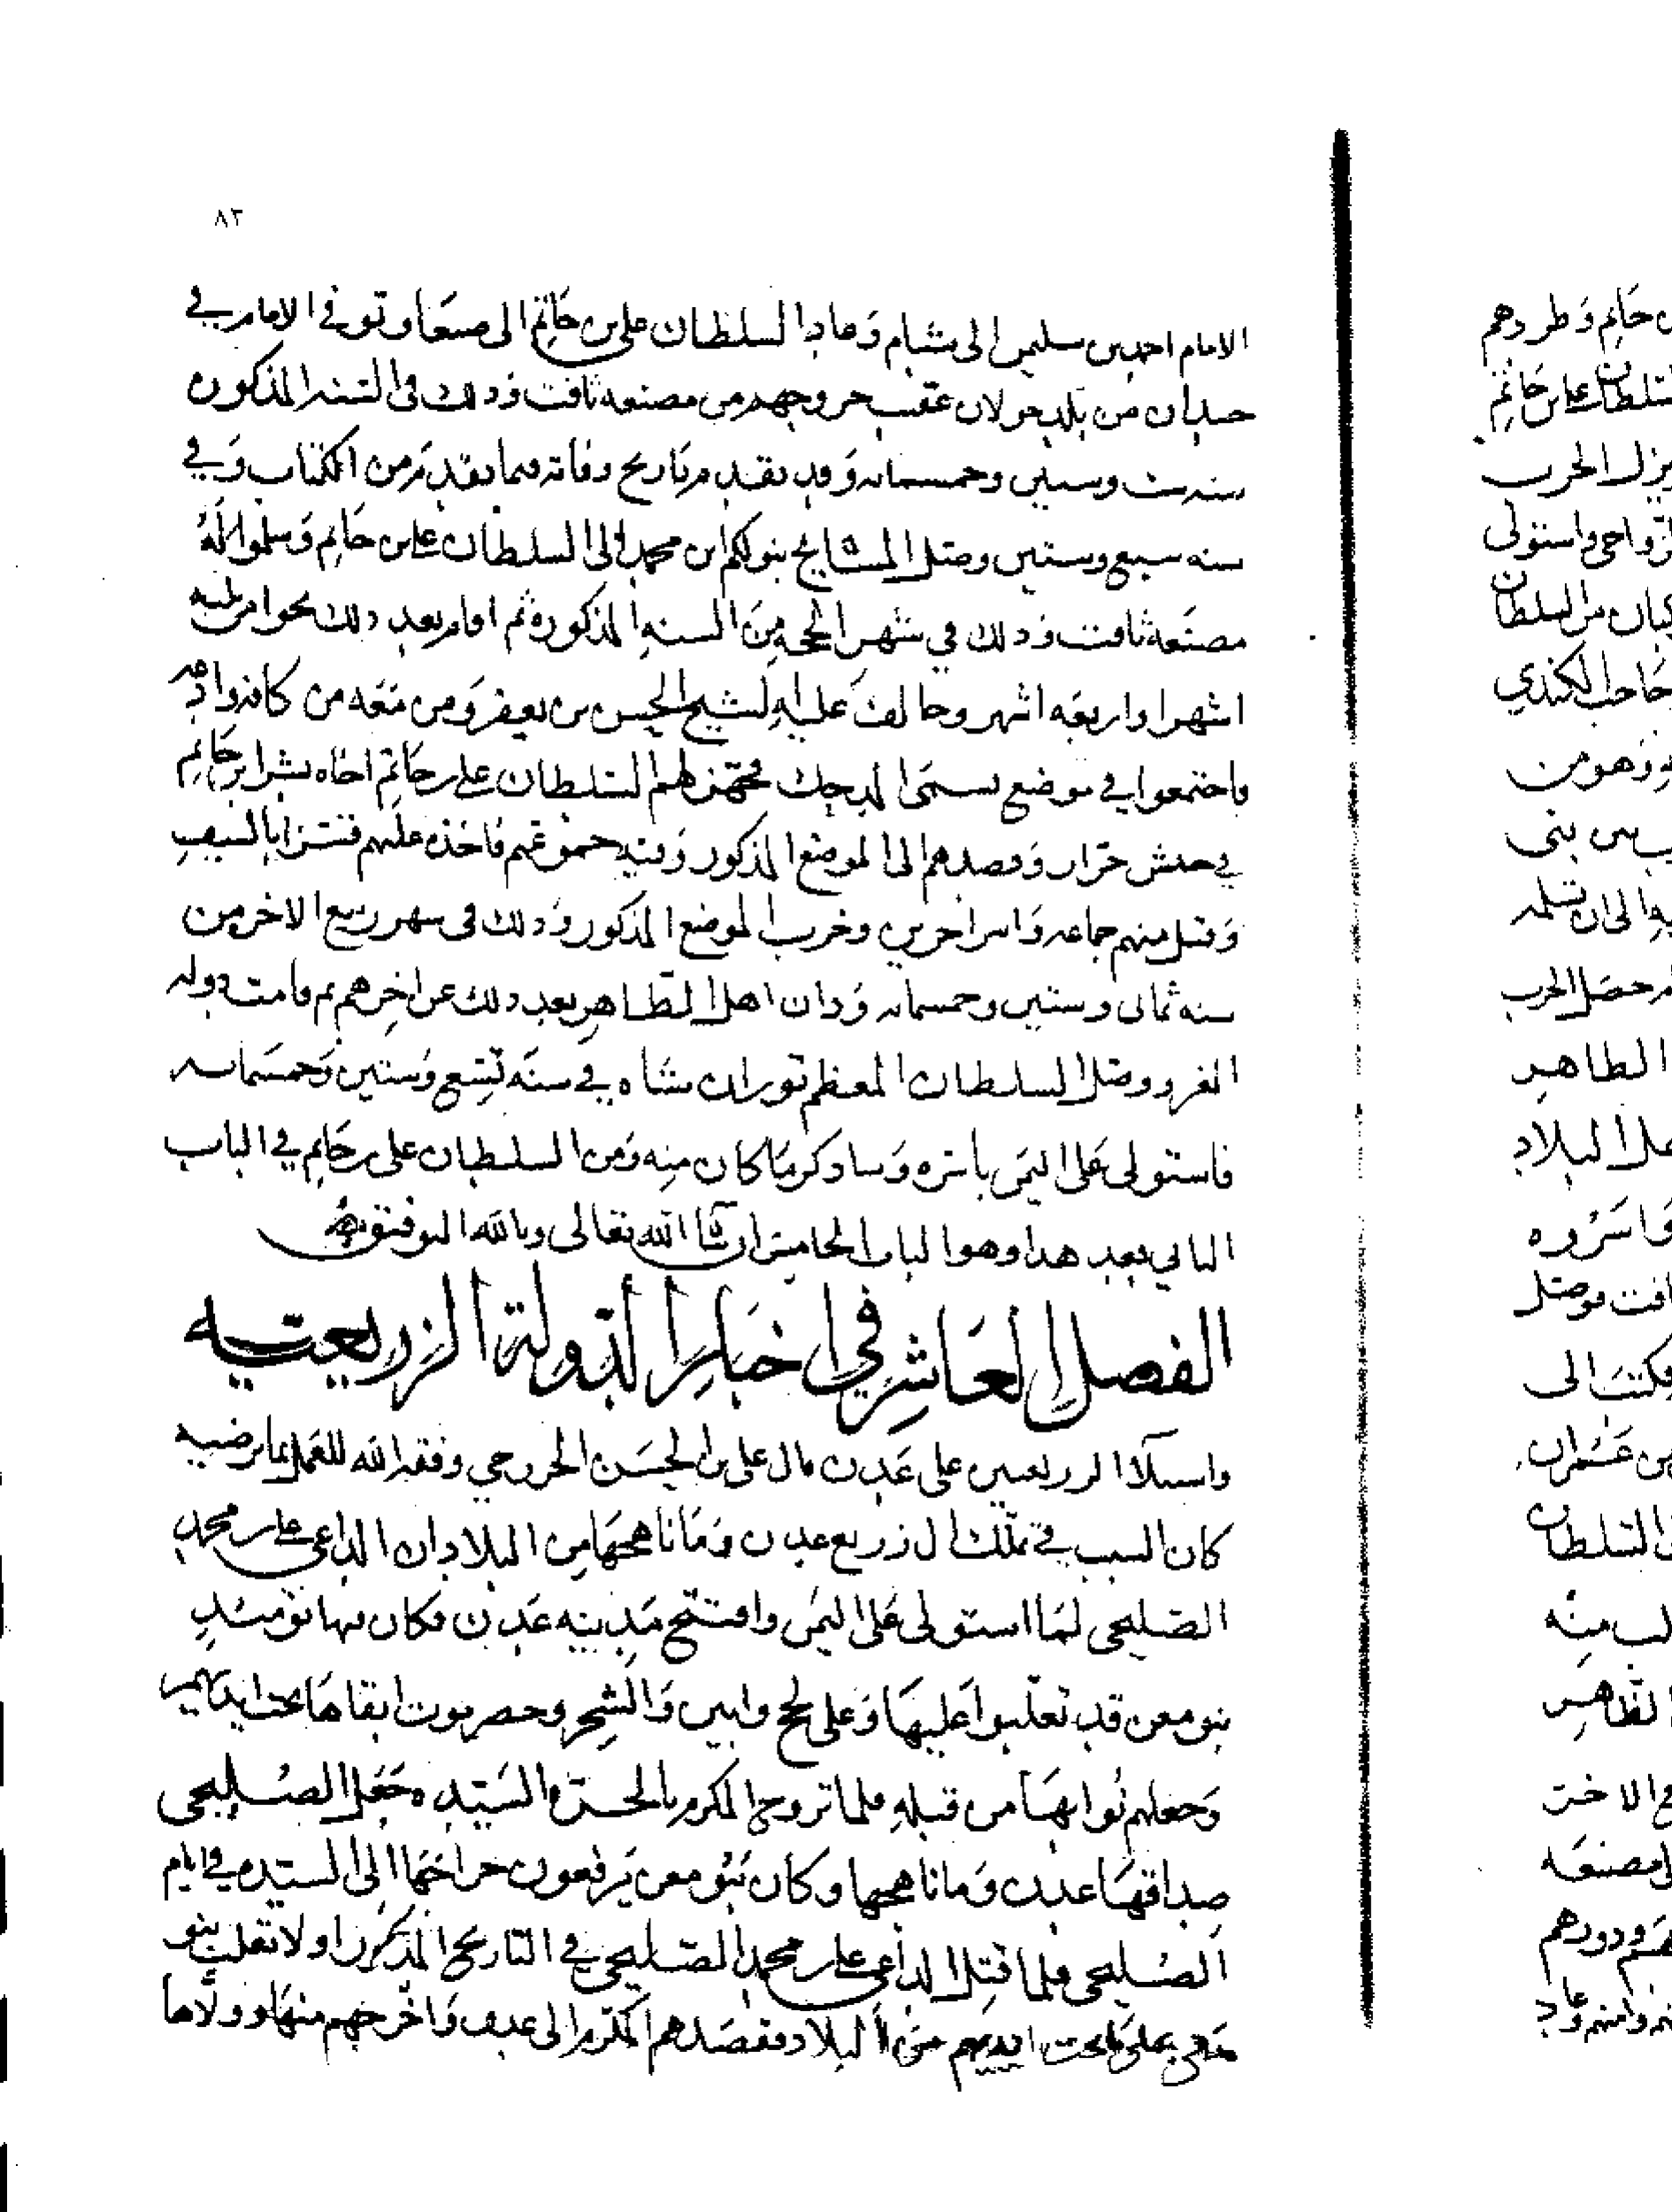 ٨٣
الامام احمد بن سليمن الى شبام وعاد السلطان علي بن حاتم الى صنعا وتوفي الامام في
حيدان من بلد خولان عقب خروجهم من مصنعه ثافت وذلك في السنه المذكوره
سنه ست وستين وخمسمائه وقد تقدم تاريخ وفاته فيما تقدم من الكتاب وفي
سنه سبع وستين وصل المشايخ بنو محمد الى السلطان علي بن حاتم وسلموا له
مصنعه ثافت وذلك في شهر الحجه من السنه المذكوره ثم اقام بعد ذلك نحوا من ثلثه
اشهر او اربعه اشهر وحالف عليه الشيخ الحسن بن يعفر ومن معه من
واجتمعوا في موضع يسمى فجهز لهم السلطان علي بن حاتم اخاه بشر بن حاتم
في جيش جرار وقصدهم الى الموضع المذكور وفيه جموعهم فاخذه عليهم قسرا بالسيف
وقتل منهم جماعه واسر اخرين وخرب الموضع المذكور وذلك في شهر ربيع الاخر من
سنه ثمان وستين وخمسمائه ودان اهل الظاهر بعد ذلك عن اخرهم ثم قامت دوله
الغز ووصل السلطان المعظم توران شاه في سنه تسع وستين وخمسمائه
فاستولى على اليمن باسره وساذكر ما كان منه ومن السلطان علي بن حاتم في الباب
التالي بعد هذا وهو الباب الخامس ان شا الله تعالى وبالله التوفيق
الفصل العاشر في اخبار الدولة الزريعيه
واستيلا الزريعيين على عدن قال علي بن الحسن الخزرجي وفقه الله للعمل بما يرضيه
كان السبب في تملك ال زريع عدن وما ناهجها من البلاد ان الداعي علي بن محمد
الصليحي لما استولى على اليمن وافتتح مدينه عدن وكان بها يومئذ
بنو معن قد تغلبوا عليها وعلى لحج وابين والشحر وحضرموت ابقاها تحت ايديهم
وجعلهم نوابها من قبله فلما تزوج المكرم بالحره السيده جعل الصليحي
صداقها عدن وما ناهجها وكان بنو معن يرفعون خراجها الى السيده في ايام
الصليحي فلما قتل الداعي علي بن محمد الصليحي في التاريخ المذكور اولا تغلب بنو
معن على ما تحت ايديهم من البلاد فقصدهم المكرم الى عدن واخرجهم منها وولاها
حاتم وطردهم
السلطان علي بن حاتم
يزل الحرب
واستولى
من السلطان
وهو من
بنى
الى ان تسلمه
حصل الحرب
الظاهر
البلاد
واسروه
فوصل
فكتب الى
بن عمران
السلطان
منه
الظاهر
الاخر
مصنعه
ودورهم